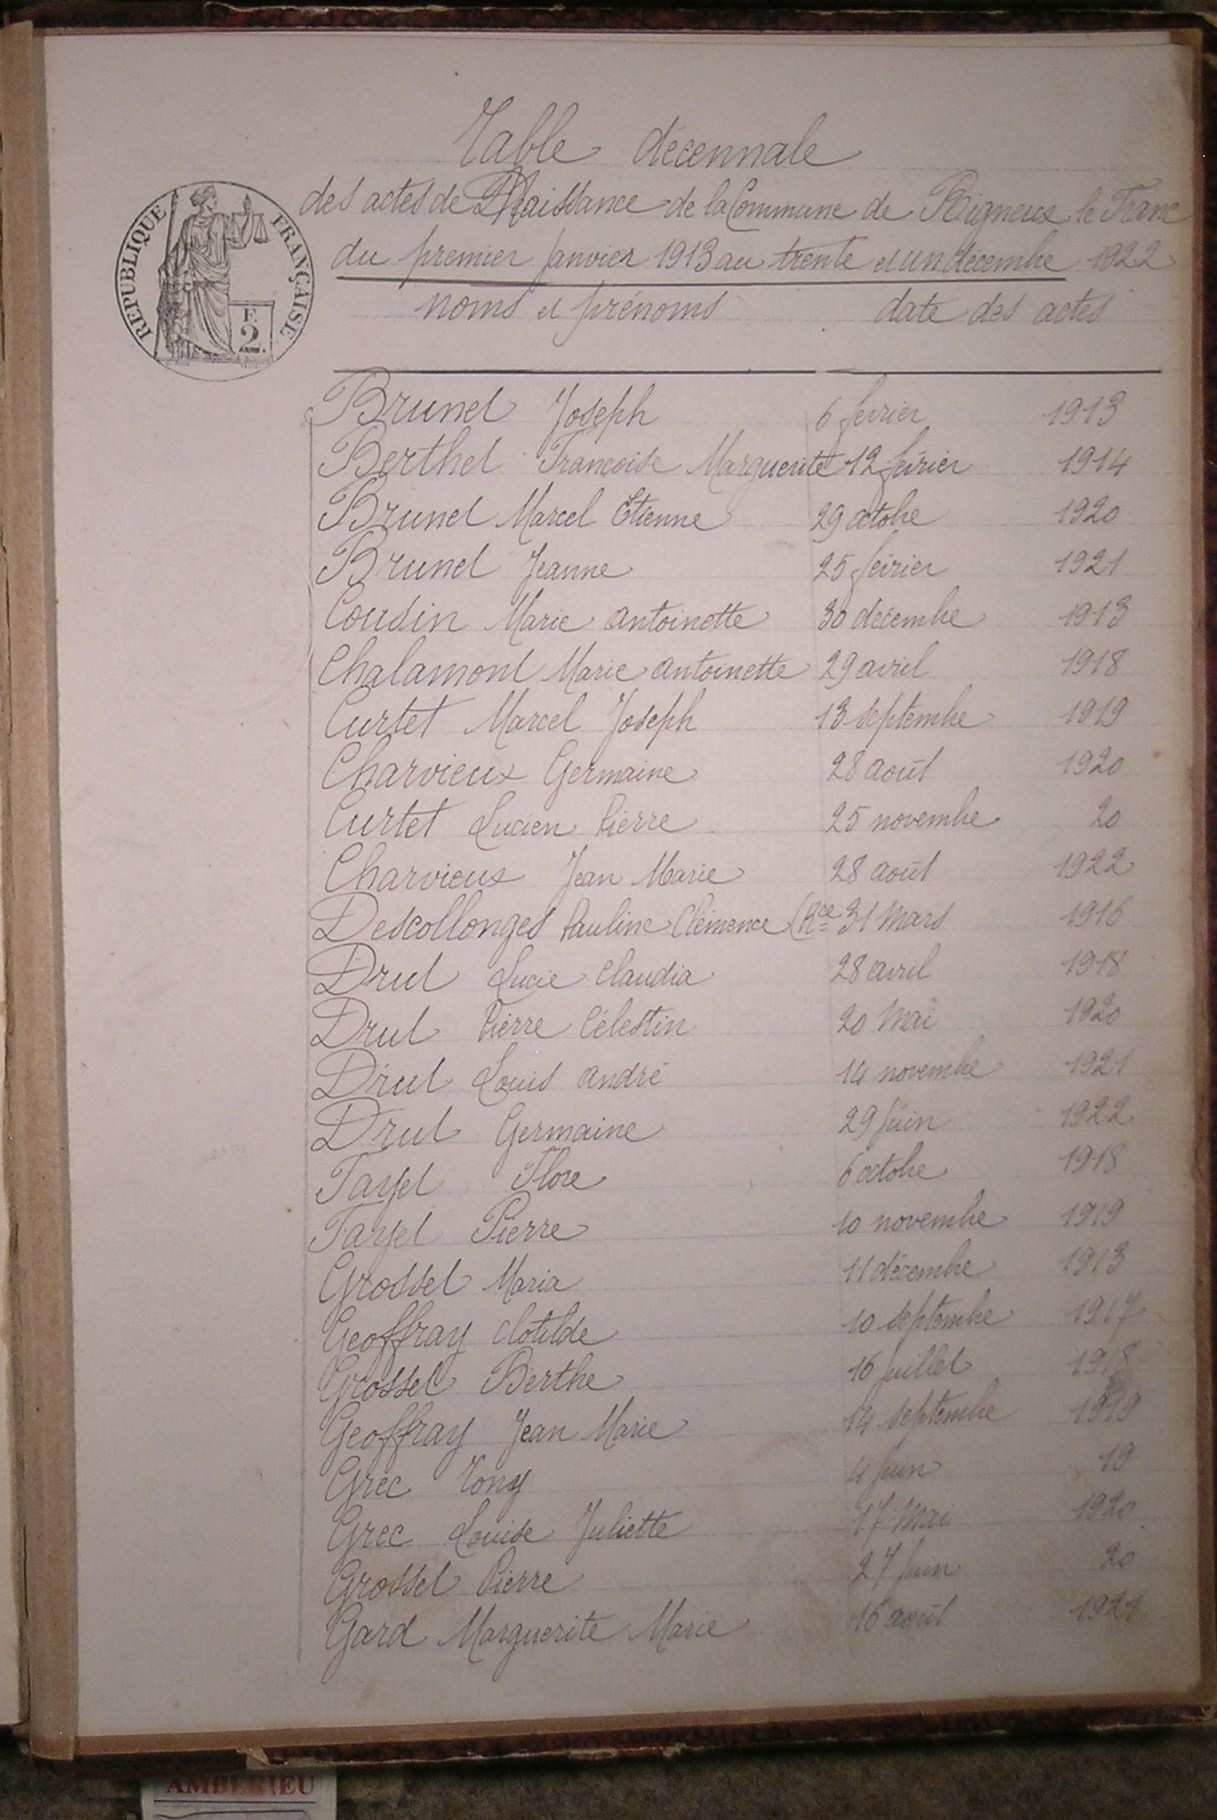 Table décennale
des actes de Naissance de la Commune de Rigneux le Franc
du premier Janvier 1913 au trente et un décembre 1922
REPUBLIQUE FRANÇAISE
2
noms et prénoms date des actes
Brunet Joseph 6 fevrier 1913
Berthet Francoise Marguerite 12 février 1914
Brunet Marcel Etienne 29 octobre 1920
Brunet Jeanne 25 février 1921
Cousin Marie antoinette 30 decembre 1913
Chalamont Marie antoinette 29 avril 1918
Curtet Marcel Joseph 13 septembre 1919
Charvieux Germaine 28 août 1920
Curtet Lucien Pierre 25 novembre 20
Charvieux Jean Marie 28 août 1922
Descollonges Pauline Clémence (Rce 31 Mars 1916
Drut Lucie Claudia 28 avril 1918
Drut Pierre Célestin 20 Mai 1920
Drut Louis andré 14 novembre 1921
Drut Germaine 29 Juin 1922
Fayet Flore 6 octobre 1918
Fayet Pierre 10 novembre 1919
Grosset Maria 11 décembre 1913
Geoffray Clotilde 10 septembre 1917
Grosset Berthe 16 juillet 1918
Geoffray Jean Marie 14 septembre 1919
Grec Tony 4 Juin 19
Grec Louise Juliette 17 Mai 1920
Grosset Pierre 27 Juin 20
Gard Marguerite Marie 16 août 1921
AMBERIEU